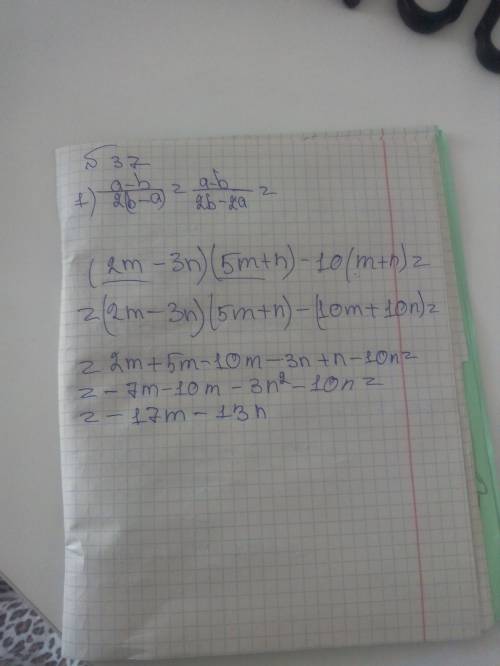 № 37
1) a-b/2(b-a) = a-b/2b-2a =
(2m-3n)(5m+n)-10(m+n)=
=(2m-3n)(5m+n)-(10m+10n)=
= 2m+5m-10m-3n+n-10n=
= -7m-10m-3n²-10n=
= -17m-13n